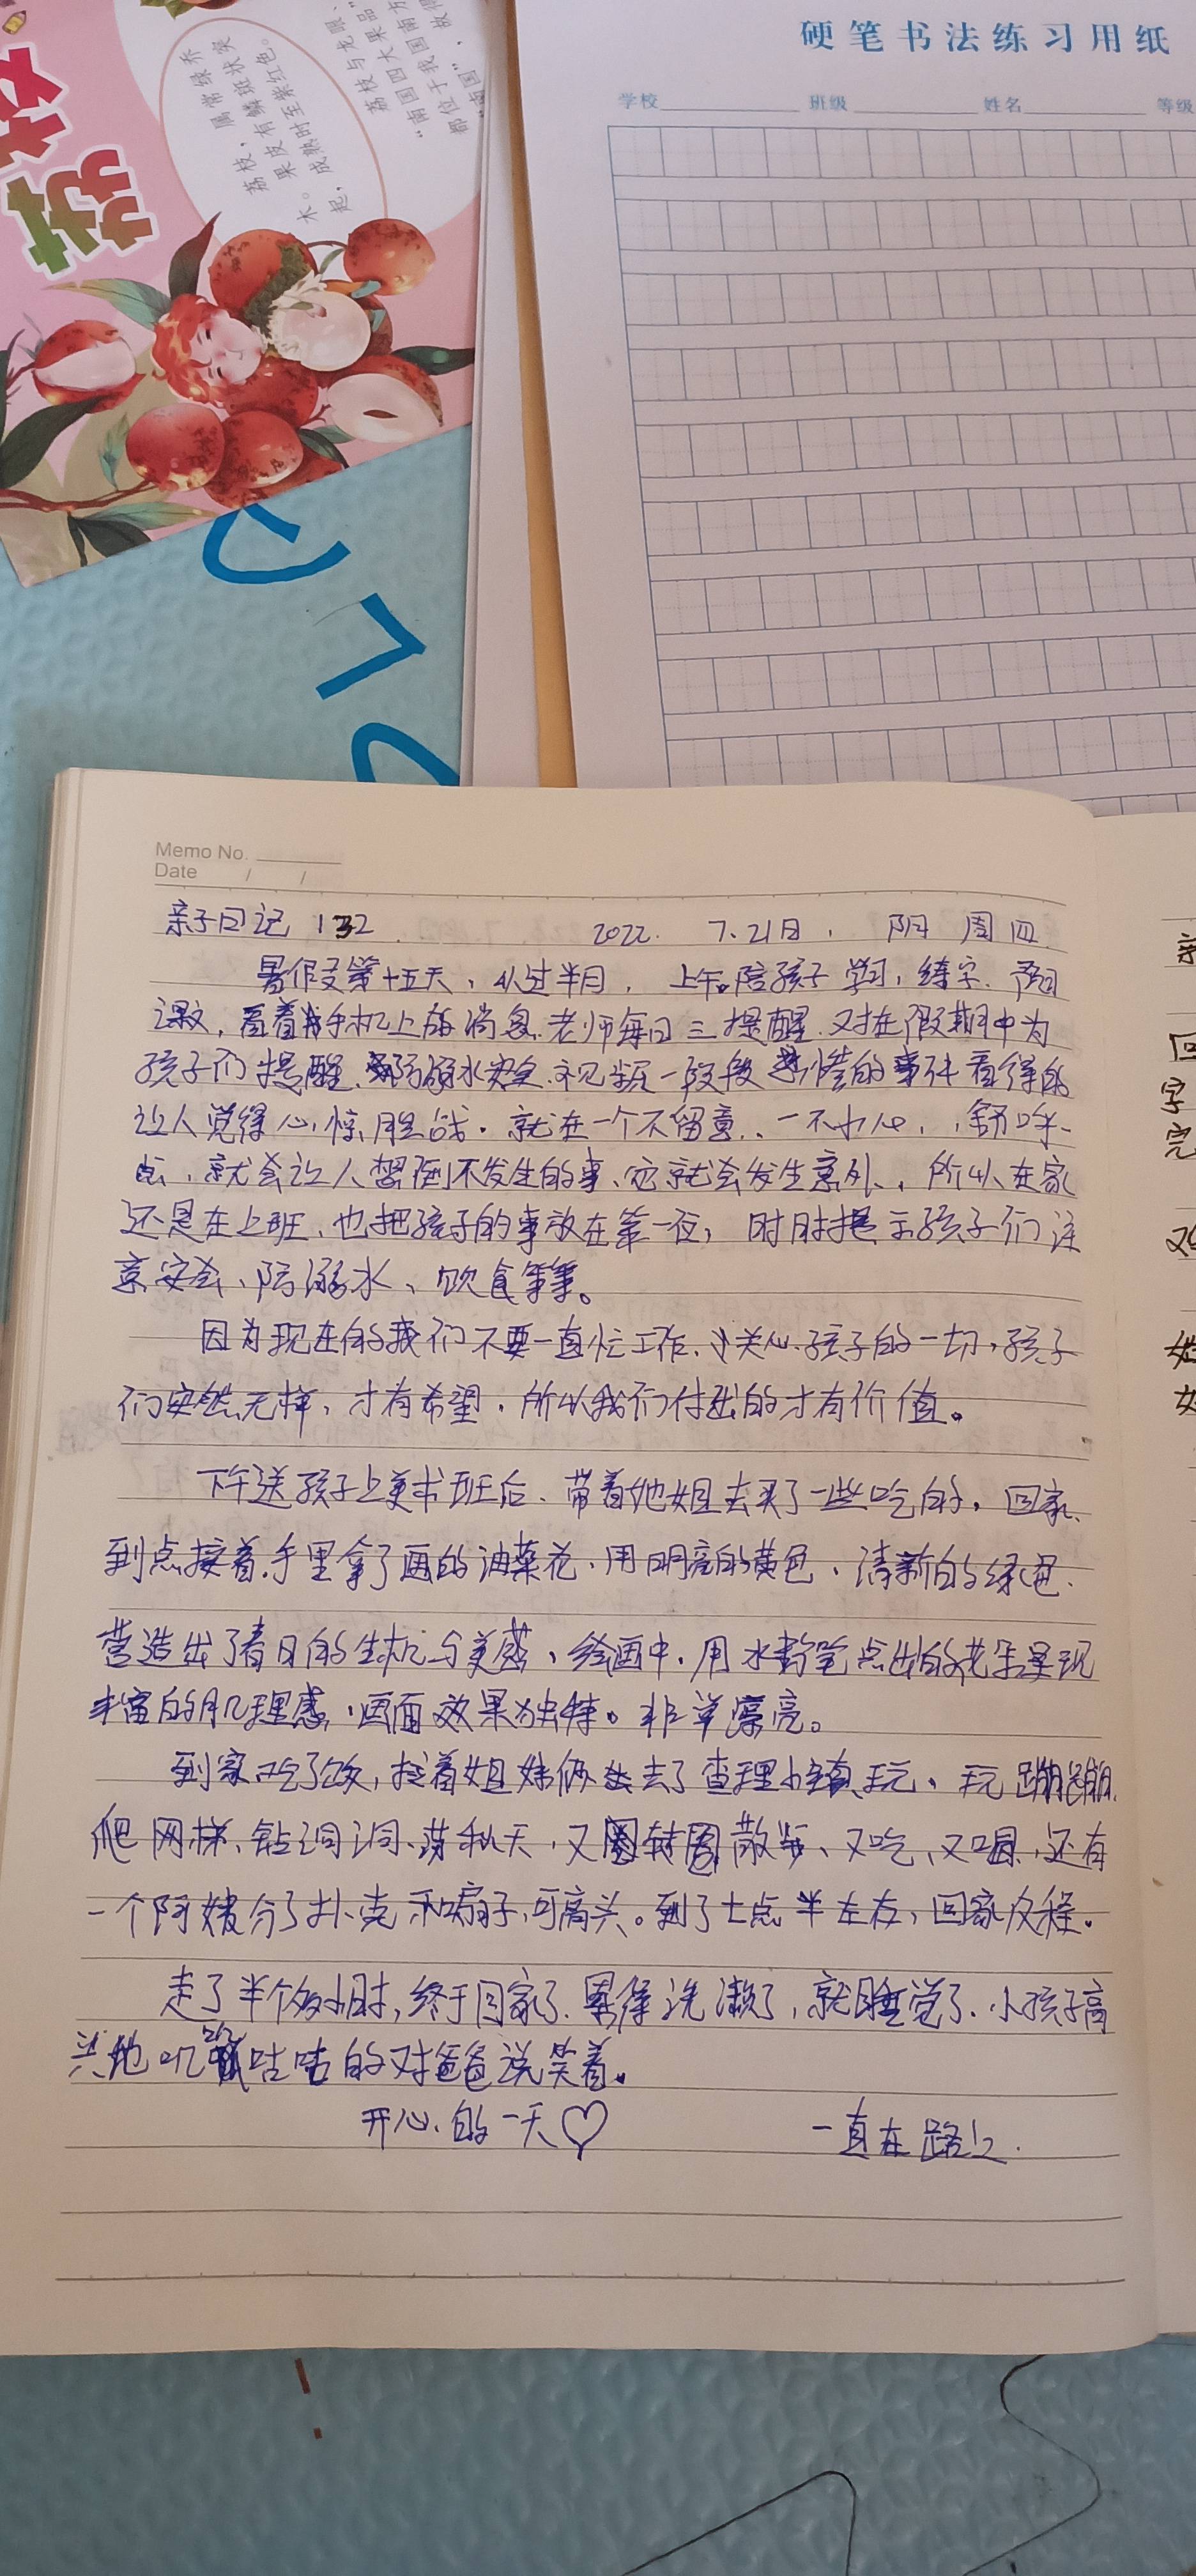 荔枝
荔枝，属常绿乔
木。果皮有鳞斑状突
起，成熟时至紫红色。
荔枝与龙眼、
"南国四大果品"
都位于我国南方
"南国"，故得
硬笔书法练习用纸
学校 班级 姓名 等级
Memo No.
Date / /
亲子日记 132 2022. 7.21日, 阴 周四
暑假第十五天, 以过半月, 上午陪孩子学习, 练字. 预习
课文, 看着手机上的消息. 老师每日三提醒. 又在假期中为
孩子们提醒、防溺水安全. 视频一段段 的事件看得的
让人觉得心惊胆战. 就在一个不留意、一不小心,
就会让人想到不发生的事、它就会发生意外, 所以在家
还是在上班、也把孩子的事放在第一位, 时时提示孩子们注
意安全、防溺水、饮食等等。
因为现在的我们不要一直忙工作. 关心孩子的一切, 孩子
们安然无样, 才有希望, 所以我们付出的才有价值。
下午送孩子上美术班后、带着她姐去买了一些吃的, 回家.
到点接着. 手里拿了画的油菜花, 用明亮的黄色、清新的绿色.
营造出了春日的生机与美感、绘画中. 用水粉笔点出的花朵呈现
丰富的肌理感, 画面效果独特。非常漂亮。
到家吃了饭, 接着姐妹俩去了查理小镇玩、玩蹦蹦.
爬网梯、钻洞洞、荡秋天, 又 转圈散步、又吃、又喝, 还有
一个阿姨分了扑克和扇子, 可高兴。到了七点半左右, 回家反程。
走了半个多小时, 终于回家了. 累得洗漱了, 就睡觉了. 小孩子高
兴地叽 咕咕的对爸爸说笑着。
开心的一天♡ 一直在路上.
亲
回
字
完